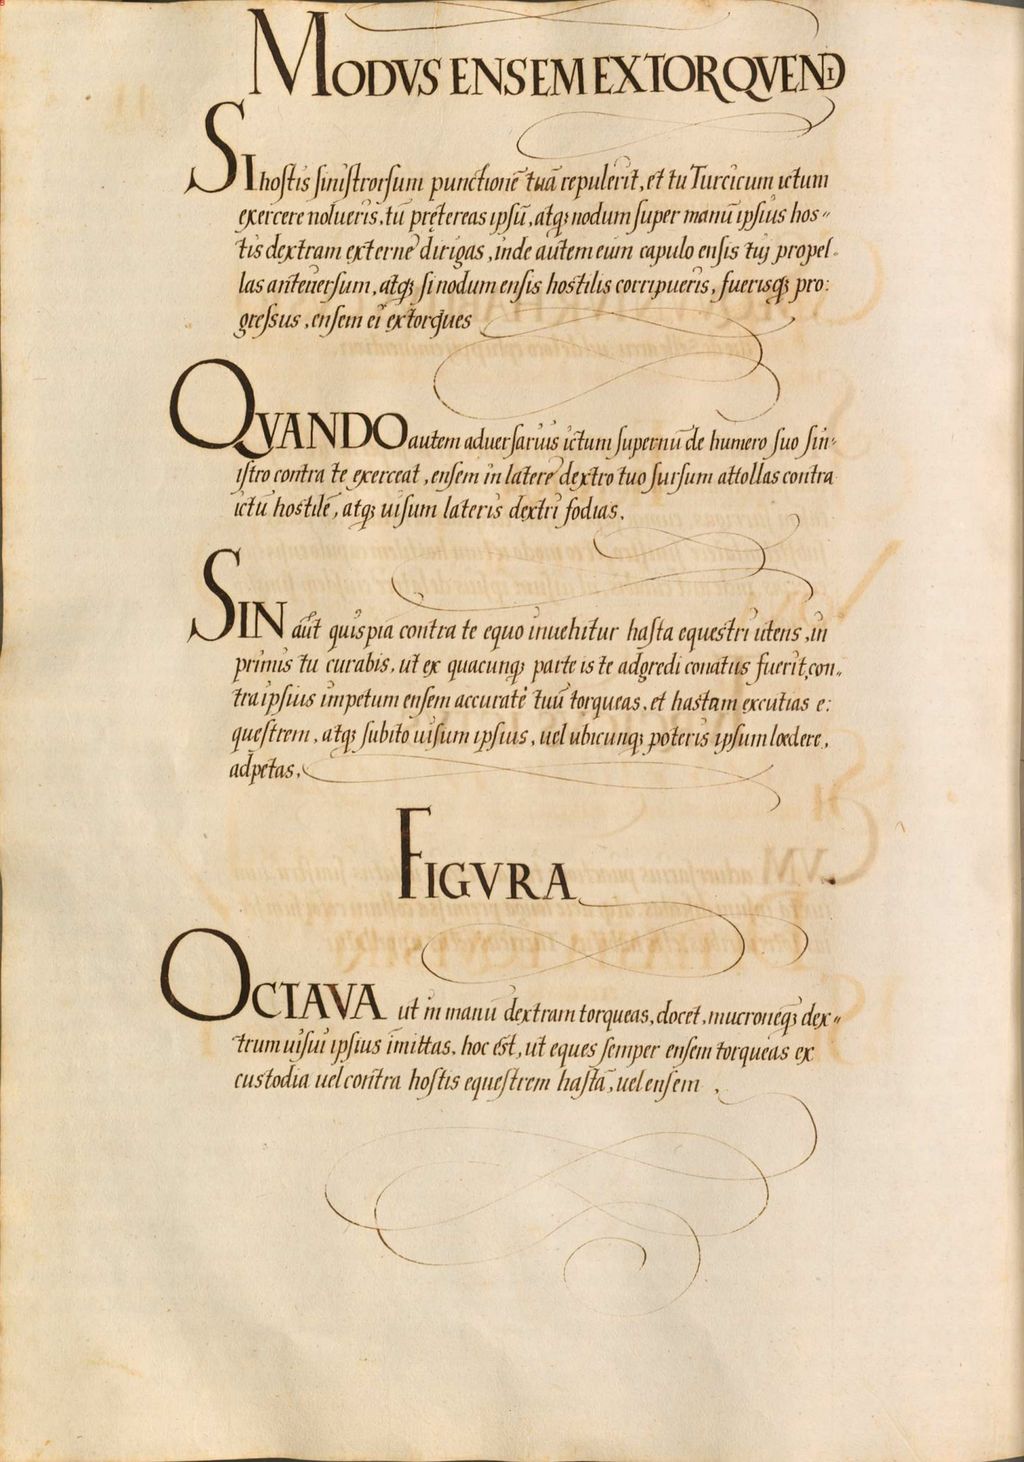 MODVS ENSEM EXTORQVENDI
SI hostis sinistrorsum punctionē tuā repulerit, et tu Turcicum ictum
exercere nolueris, tū prętereas ipsū, atq; nodum super manū ipsius hos=
tis dextram externe dirigas, inde autem eum capulo ensis tuj propel=
las anteuersum, atq; si nodum ensis hostilis corripueris, fuerisq; pro:
gressus, ensem ei extorques
QVANDO autem aduersarius ictum supernū de humero suo sin=
istro contra te exerceat, ensem in latere dextro tuo sursum attollas contra
ictū hostilē, atq; uisum lateris dextri fodias.
SIN aūt quispiā contra te equo inuehitur hasta equestri utens, in
primis tu curabis, ut ex quacunq; parte is te adgredi conatus fuerit, con=
tra ipsius impetum ensem accurate tuū torqueas, et hastam excutias e:
questrem, atq; subito uisum ipsius, uel ubicunq; poteris ipsum lœdere,
adpetas.
FIGVRA
OCTAVA ut in manū dextram torqueas, docet, mucroneq; dex=
trum uisui ipsius īmittas, hoc est, ut eques semper ensem torqueas ex
custodia uel contra hostis equestrem hastā, uel ensem.